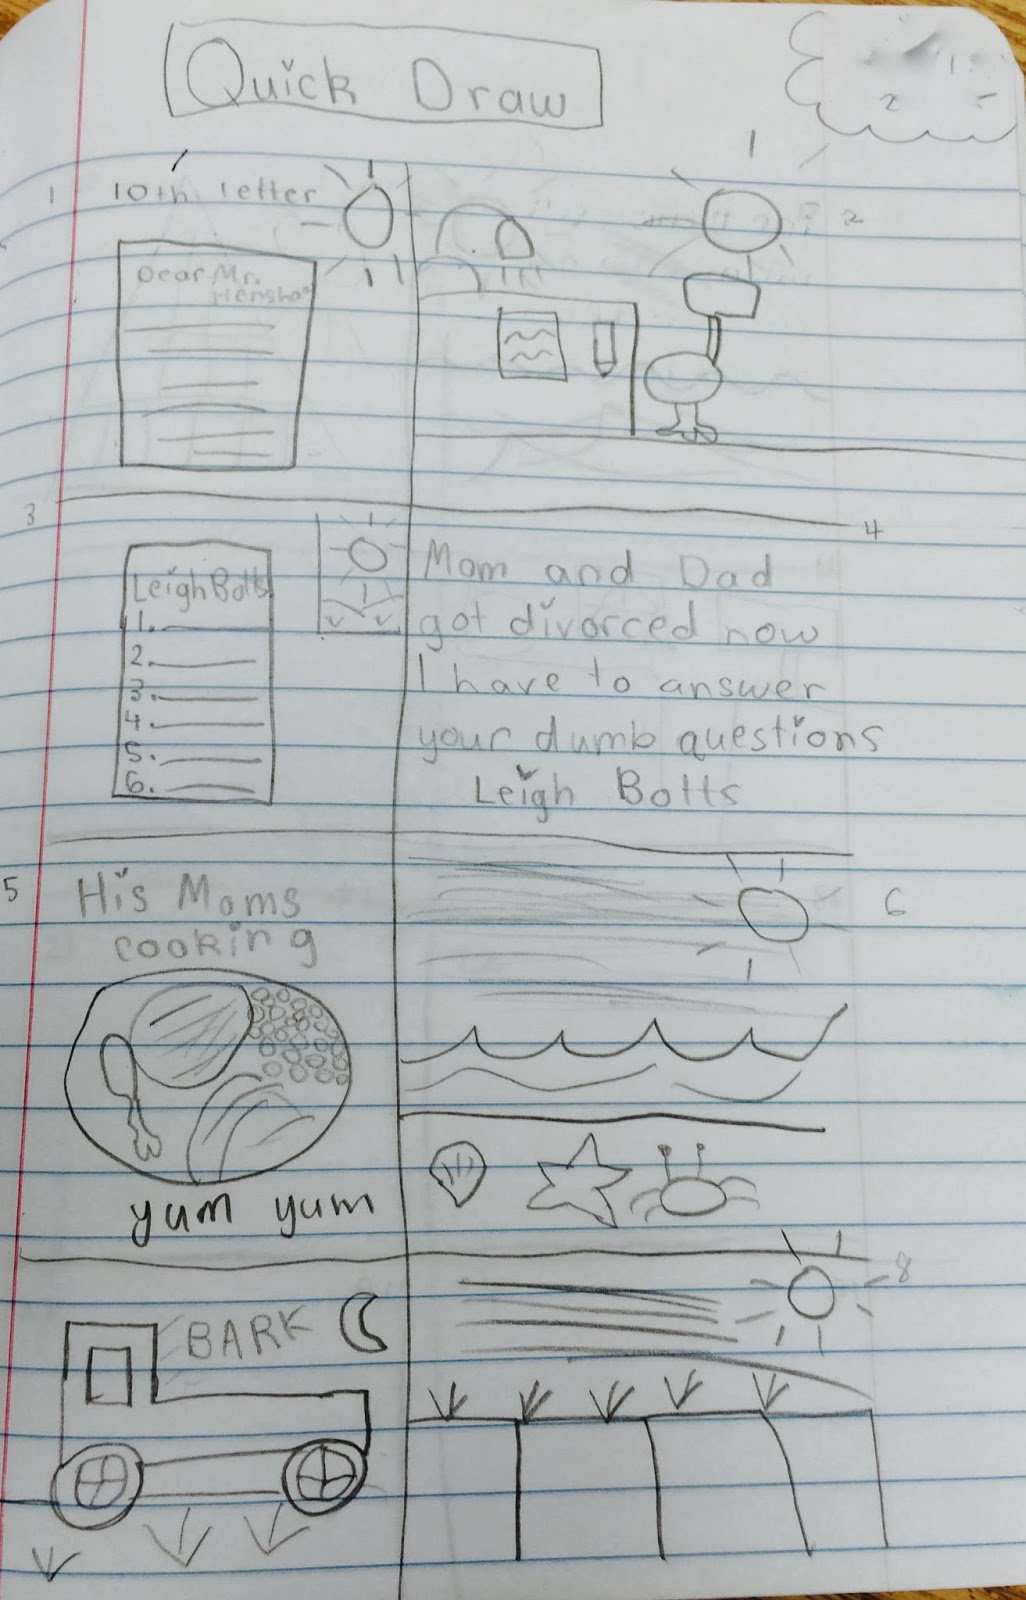 Quick Draw
1 10th letter
Dear Mr.
Henshaw
2
3
Leigh Botts
1.
2.
3.
4.
5.
6.
4
Mom and Dad
got divorced now
I have to answer
your dumb questions
Leigh Botts
5 His Moms
cooking
yum yum
6
BARK
8